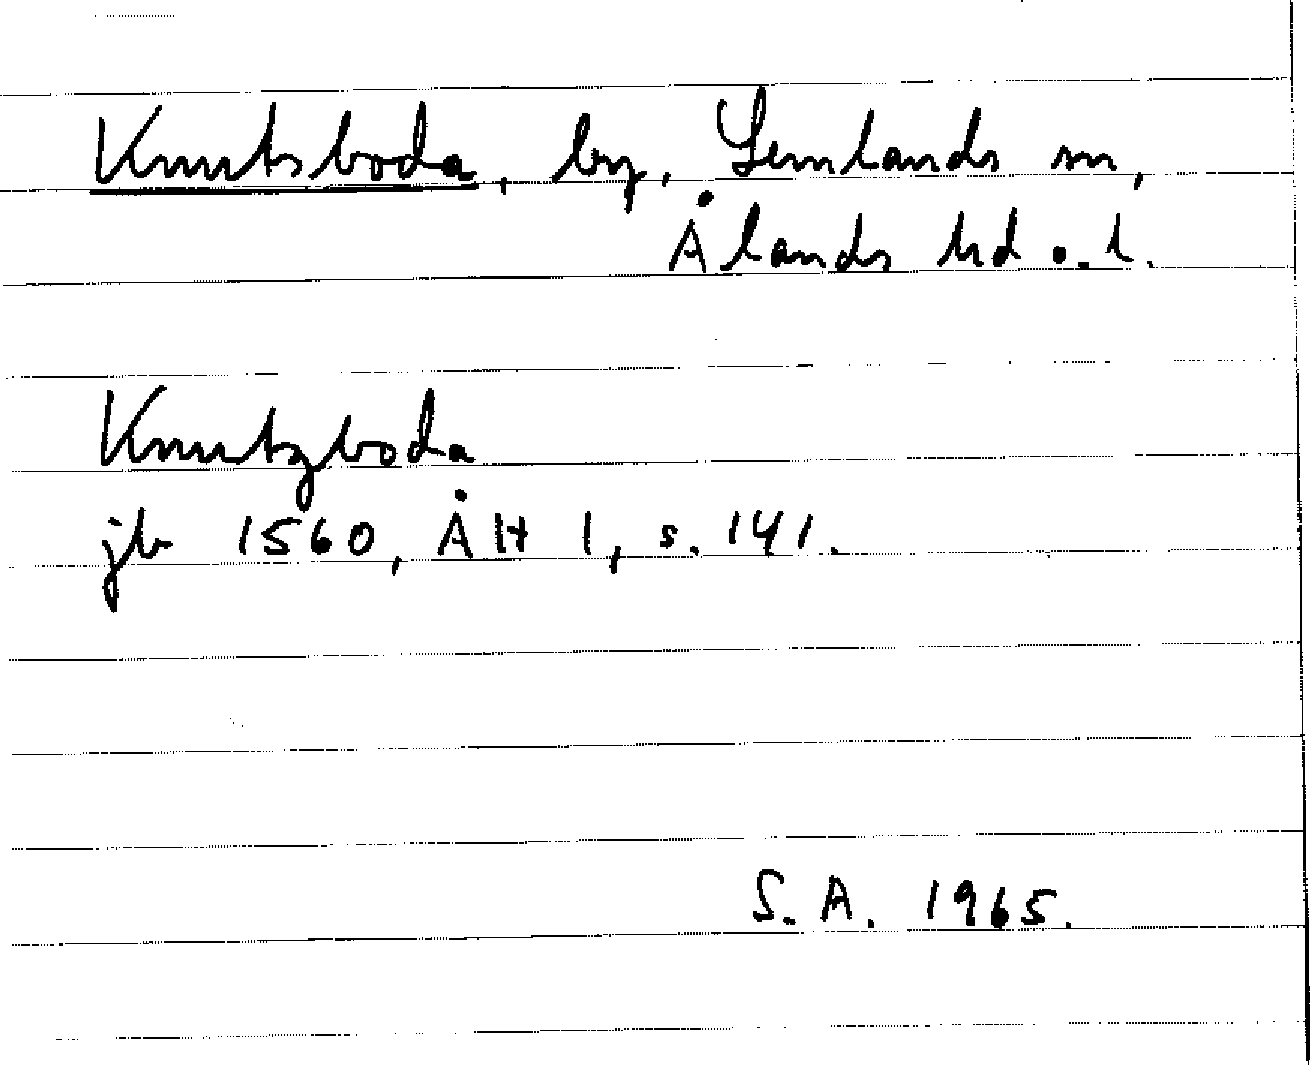 Knutsboda, by, Lemlands sn,
Ålands hd o. l.
Knutzboda
jb 1560, ÅH 1, s. 141.
S. A. 1965.